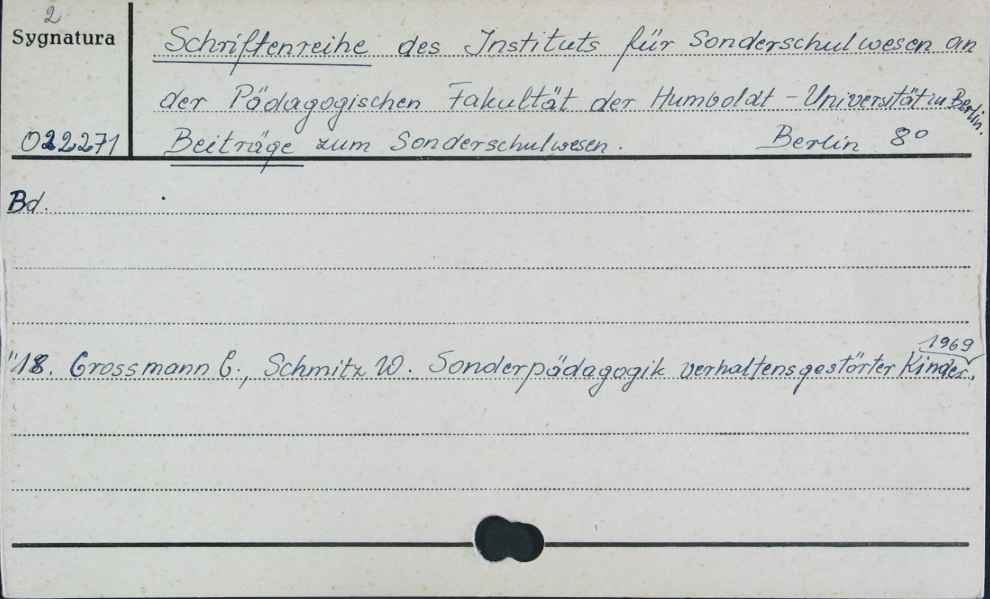 2
Sygnatura
022271
Schriftenreihe des Instituts für Sonderschulwesen an
der Pädagogischen Fakultät der Humboldt-Universität in Berlin.
Beiträge zum Sonderschulwesen. Berlin 8°
Bd.
1969
"18. Grossmann G., Schmitz W. Sonderpädagogik verhaltensgestörter Kinder.